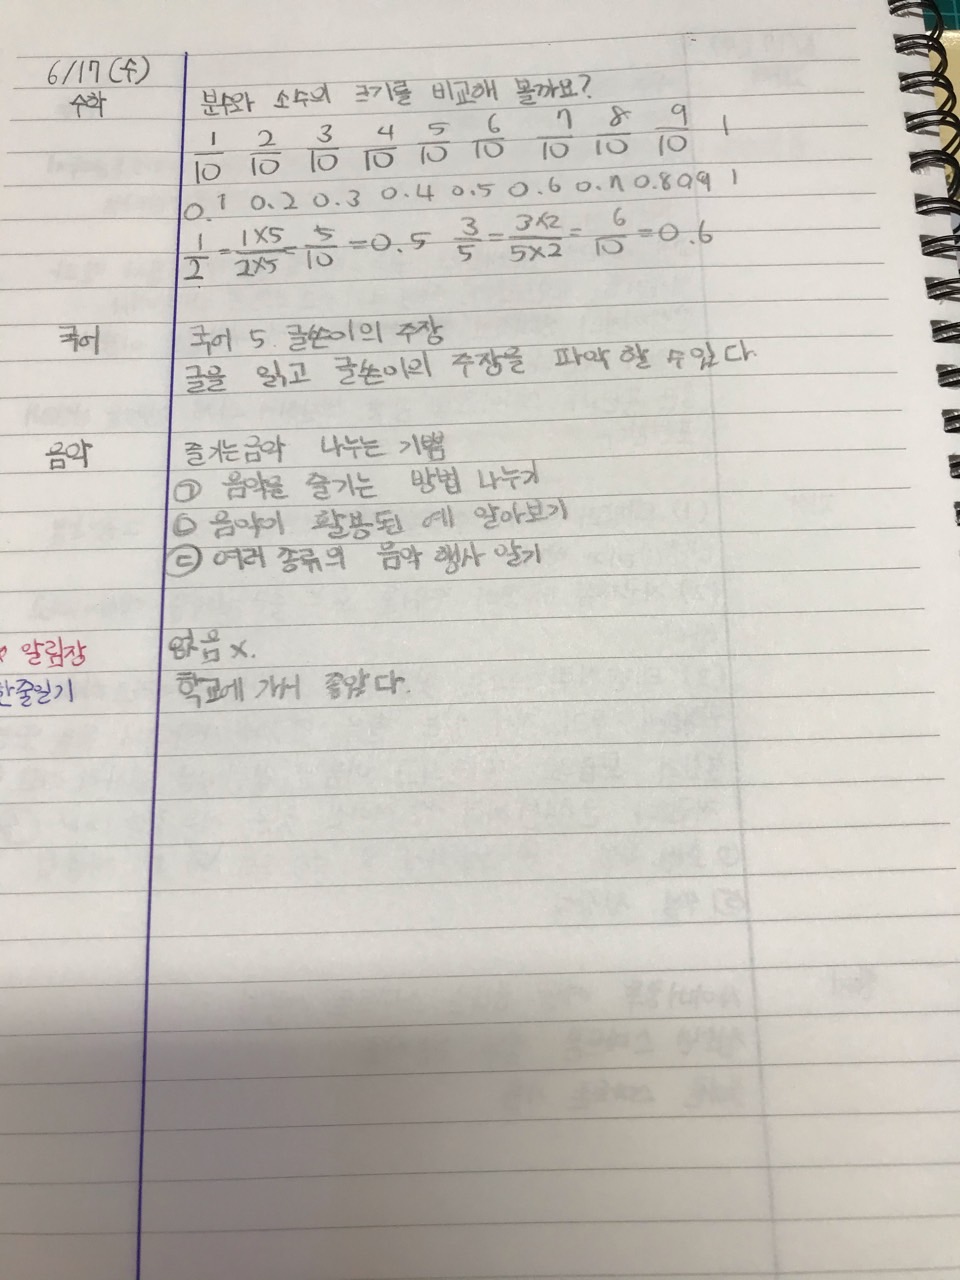 6/17(수)
수학 분수와 소수의 크기를 비교해 볼까요?
1/10 2/10 3/10 4/10 5/10 6/10 7/10 8/10 9/10 1
0.1 0.2 0.3 0.4 0.5 0.6 0.7 0.8 0.9 1
1/2 = 1×5/2×5 = 5/10 = 0.5 3/5 = 3×2/5×2 = 6/10 = 0.6
국어 국어 5. 글쓴이의 주장
글을 읽고 글쓴이의 주장을 파악 할 수 있다.
음악 즐기는 음악 나누는 기쁨
㉠ 음악을 즐기는 방법 나누기
㉡ 음악이 활용된 예 알아보기
㉢ 여러 종류의 음악 행사 알기
알림장 없음 x.
한줄일기 학교에 가서 좋았다.